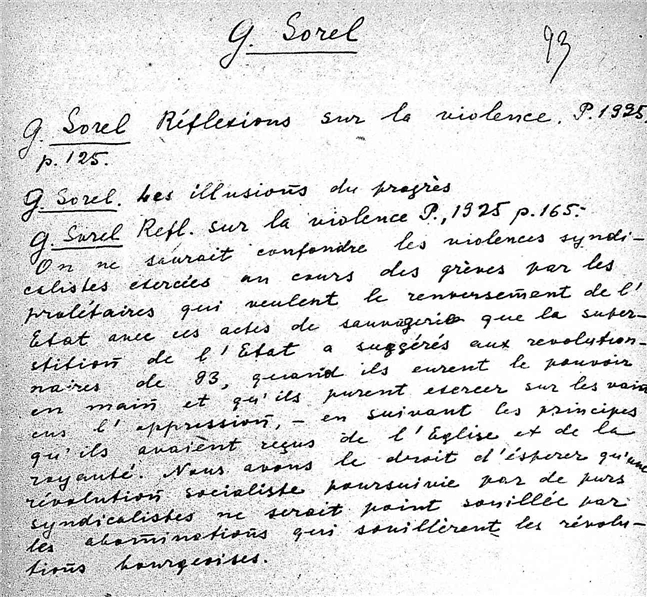 G. Sorel
93
G. Sorel Réflexions sur la violence. P. 1925.
p. 125.
G. Sorel. Les illusions du progrès
G. Sorel Refl. sur la violence P., 1925 p. 165.
On ne saurait confondre les violences syndi-
calistes exercées au cours des grèves par les
prolétaires qui veulent le renversement de l'
Etat avec ces actes de sauvagerie que la super-
stition de l'Etat a suggérés aux revolution-
naires de 93, quand ils eurent le pouvoir
en main et qu'ils purent exercer sur les vain
cus l'oppression, – en suivant les principes
qu'ils avaient reçus de l'Eglise et de la
royauté. Nous avons le droit d'éspérer qu'une
révolution socialiste poursuivie par de purs
syndicalistes ne serait point souillée par
les abominations qui souillèrent les révolu-
tions bourgeoises.